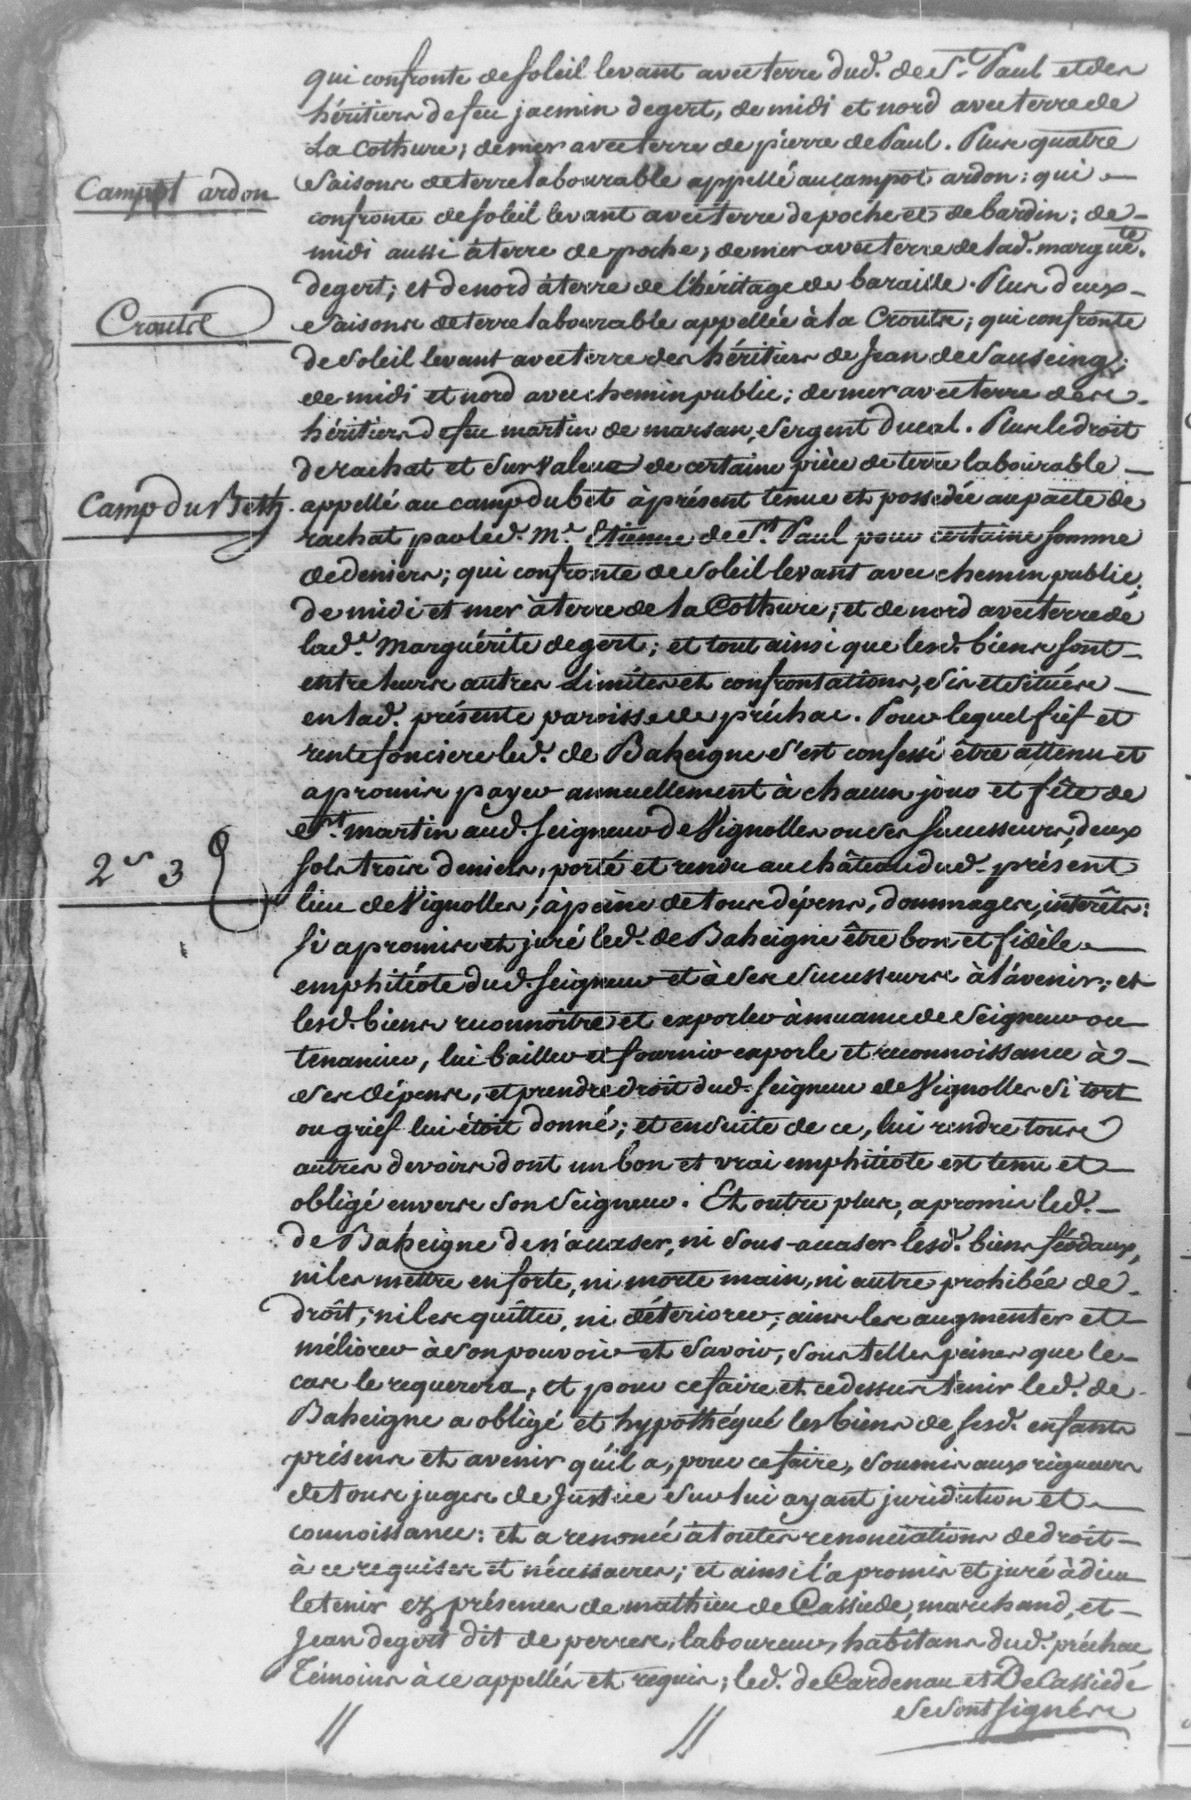 qui confronte de soleil levant avec terre dud. de St. Paul et des
héritiers de feu jacmin degert, de midi et nord avec terre de
La Cothure; de mer avec terre de pierre de Paul. Plus quatre
Campot ardon
Saisons de terre labourable appellé au campot ardon: qui
confronte de soleil levant avec terre de poche et de bardin; de
midi aussi à terre de poche; de mer avec terre de lad. marguete.
degert; et de nord à terre de l'héritage de baraille. Plus deux
Croutse
Saisons de terre labourable appellée à la Croutse; qui confronte
de soleil levant avec terre des héritiers de Jean de Sauseing;
de midi et nord avec chemin public; de mer avec terre des
héritiers de feu martin de marsan, Sergent ducal. Plus le droit
de rachat et Survaleur de certaine pièce de terre labourable
Camp du Beth
appellé au camp du bet à présent tenue et possedée au pacte de
rachat par led. Me. Etienne de St. Paul pour certaine somme
de deniers; qui confronte de soleil levant avec chemin public;
de midi et mer à terre de la Cothure; et de nord avec terre de
lade. Marguérite degert; et tout ainsi que lesd. biens sont
entre leurs autres Limites et confrontations, Sis et Situés
en lad. présente paroisse de préchac. Pour lequel fief et
rente fonciere led. de Baheigne s'est confessé être attenu et
a promis payer annuellement à chacun jour et fête de
St. martin aud. seigneur de Vignolles ou ses successeurs, deux
2s 3d
sols trois deniers, porté et rendu au château dud. présent
lieu de Vignolles; à peine de tous dépens, dommages, intérêts:
si a promis et juré led. de Baheigne être bon et fidèle
emphitéote dud. seigneur et à Ses Successeurs à l'avenir; et
lesd. biens reconnoitre et exporler à muance de Seigneur ou
tenancier, lui bailler et fournir exporle et reconnoissance à
Ses dépens, et prendre droit dud. seigneur de Vignolles Si tort
ou grief lui étoit donné; et ensuite de ce, lui rendre tous
autres devoirs dont un bon et vrai emphitéote est tenu et
obligé envers Son Seigneur. Et outre plus, a promis led.
de Baheigne de n'acaser, ni Sous-acaser lesd. biens féodaux,
ni les mettre en forte, ni morte main, ni autre prohibée de
droit; ni les quitter, ni déteriorer; ains les augmenter et
méliorer à Son pouvoir et Savoir, Sous telles peines que le
cas le requerera; et pour ce faire et ce dessus tenir led. de
Baheigne a obligé et hypothéqué les biens de sesd. enfants
présens et avenir qu'il a, pour ce faire, Soumis aux rigueurs
de tous juges de Justice Sur lui ayant juridiction et
connoissance: et a renoncé à toutes renonciations de droit
à ce requises et nécessaires; et ainsi l'a promis et juré à dieu
le tenir ez présences de mathieu de Cassiede, marchand, et
Jean degert dit de perres, laboureur, habitans dud. préchac
Témoins à ce appellés et requis; led. de Cardenau et De Cassiede
Se Sont signés